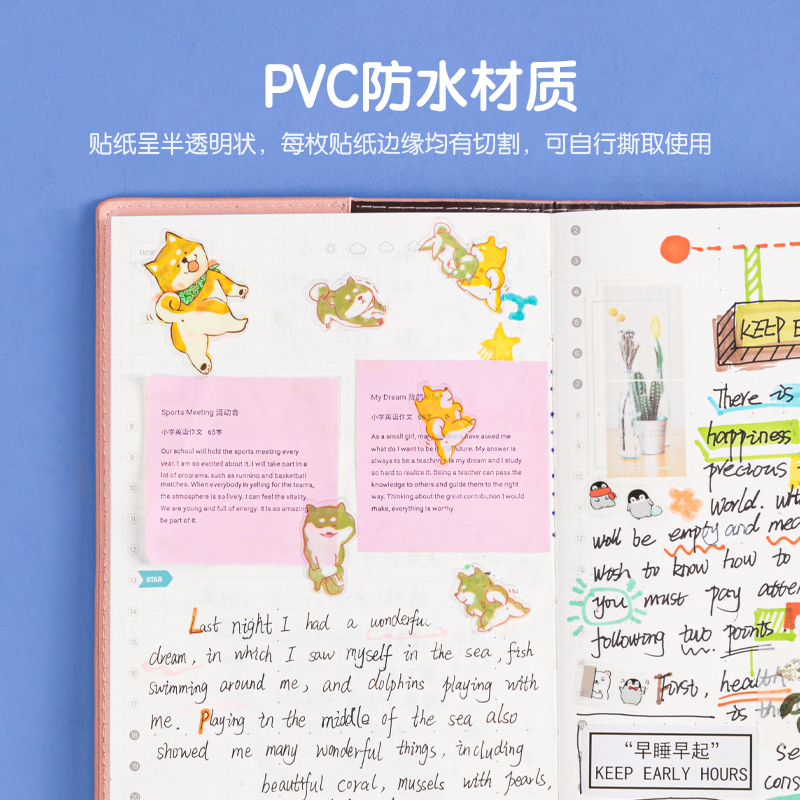 PVC防水材质
贴纸呈半透明状，每枚贴纸边缘均有切割，可自行撕取使用
Date
Sports Meeting 流动会
小学英语作文 65字
Our school will hold the sports meeting every
year. I am so excited about it. I will take part in a
lot of programs, such as running and basketball
matches. When everybody is yelling for the teams,
the atmosphere is so lively. I can feel the vitality.
We are young and full of energy. It is so amazing
be part of it.
My Dream 我的
小学英语作文
As a small girl, many have asked me
what do I want to be in future. My answer is
always to be a teacher. is my dream and I study
so hard to realize it. Being a teacher can pass the
knowledge to others and guide them to the right
way. Thinking about the great contribution I would
make, everything is worthy.
STAR
Last night I had a wonderfu
dream, in which I saw myself in the sea, fish
swimming around me, and dolphins playing with
me. Playing in the middle of the sea also
showed me many wonderful things, including
beautiful coral, mussels with pearls,
2
3
4
5
6
7
8
9
10
11
12
13
14
15
16
17
18
19
20
KEEP E
There is
happiness
precious
world. wit
will be empty and mea
wish to know how to
you must pay atte
following two points.
First, health
is the
"早睡早起"
KEEP EARLY HOURS
Se
cons